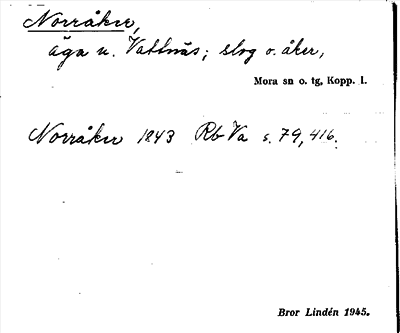 Norråker,
äga u. Vattnäs; slog o. åker,
Mora sn o. tg, Kopp. l.
Norråker 1843 Rb Va s. 79, 416.
Bror Lindén 1945.